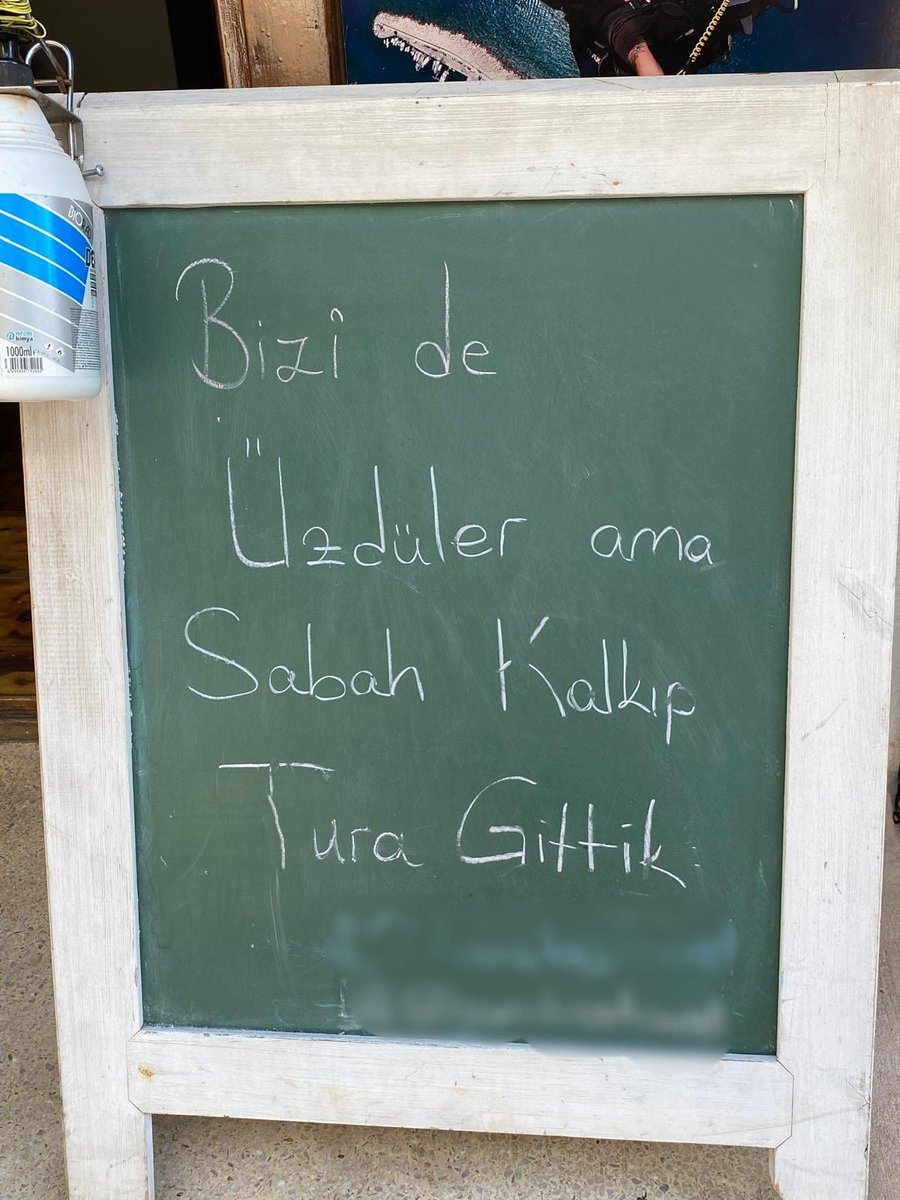 Bizi de
Üzdüler ama
Sabah Kalkıp
Tura Gittik
1000ml